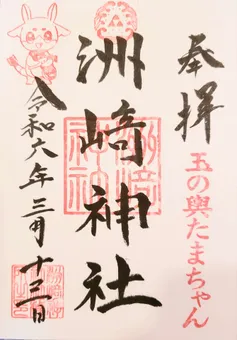 奉拝
玉の輿たまちゃん
洲崎神社
令和六年三月十三日